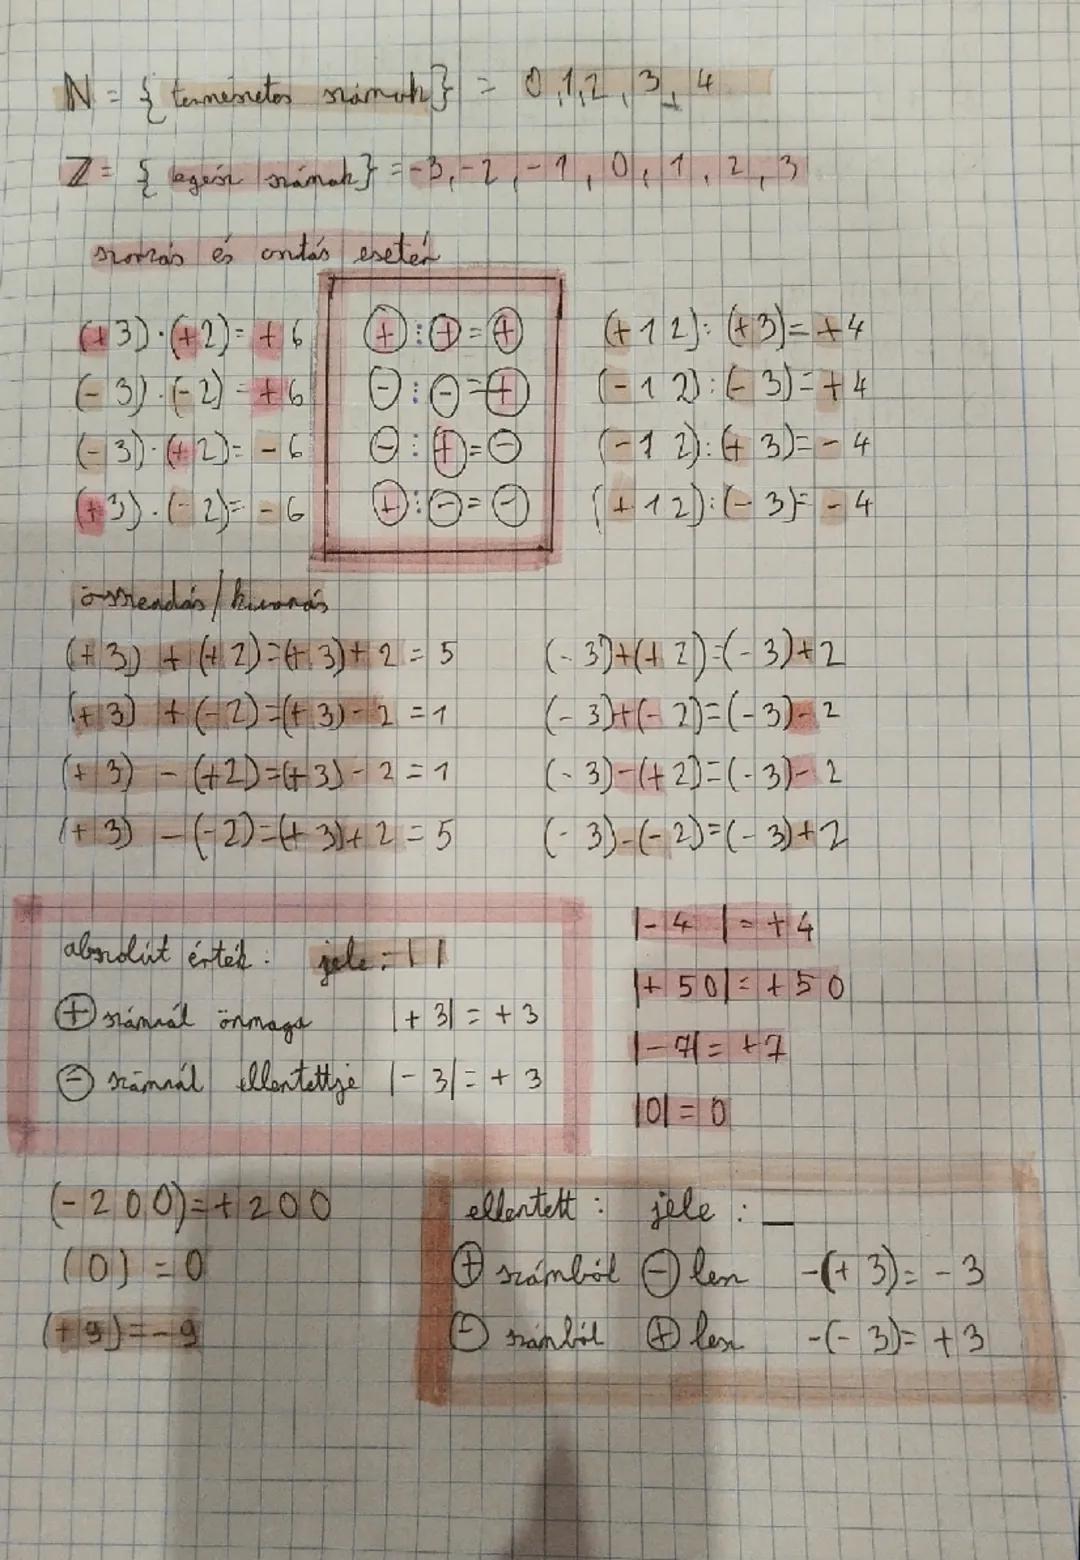 N = { természetes számok } = 0,1,2,3,4
Z = { egész számok } = -3,-2,-1,0,1,2,3
szorzás és osztás esetén
(+3)·(+2)=+6
(-3)·(-2)=+6
(-3)·(+2)=-6
(+3)·(-2)=-6
+ : + = +
- : - = +
- : + = -
+ : - = -
(+12):(+3)=+4
(-12):(-3)=+4
(-12):(+3)=-4
(+12):(-3)=-4
összeadás/kivonás
(+3) + (+2)=(+3)+2=5
(+3) + (-2)=(+3)-2=1
(+3) - (+2)=(+3)-2=1
(+3) - (-2)=(+3)+2=5
(-3)+(+2)=(-3)+2
(-3)+(-2)=(-3)-2
(-3)-(+2)=(-3)-2
(-3)-(-2)=(-3)+2
abszolút érték: jele: | |
+ számnál önmaga |+3|=+3
- számnál ellentettje |-3|=+3
|-4|=+4
|+50|=+50
|-7|=+7
|0|=0
(-200)=+200
(0)=0
(+9)=-9
ellentett: jele: _
+ számból - lesz -(+3)=-3
- számból + lesz -(-3)=+3